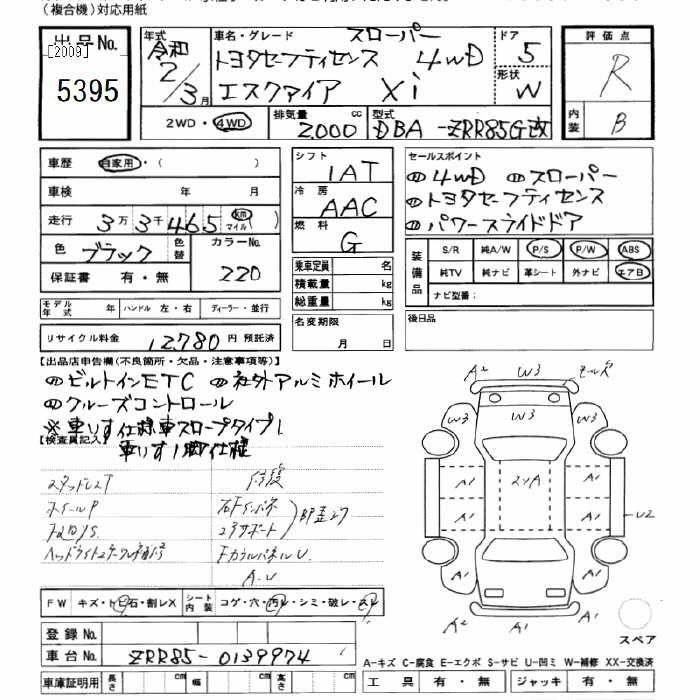 (複合機)対応用紙
出品No.
[2009]
5395
年式 令和 2/3月
車名・グレード スローパー
トヨタセーフティセンス 4WD
エスクァイア Xi
ドア 5
形状 W
評価点 R
内装 B
2WD・4WD
排気量 2000 cc
型式 DBA-ZRR85G改
車歴 自家用・( )
車検 年 月
走行 3万3千465 km マイル( )
色 ブラック 色替 カラーNo. 220
保証書 有・無
モデル年式 年 ハンドル 左・右 ディーラー・並行
リサイクル料金 12780 円 預託済
シフト IAT
冷房 AAC
燃料 G
乗車定員 名
積載量 kg
総重量 kg
名変期限
月 日
セールスポイント
4WD スローパー
トヨタセーフティセンス
パワースライドドア
装備品
S/R 純A/W P/S P/W ABS
純TV 純ナビ 革シート 外ナビ エアB
ナビ型番:
後日品
【出品店申告欄(不良箇所・欠品・注意事項等)】
ビルトインETC 社外アルミホイール
クルーズコントロール
※車いす仕様車スロープタイプI
車いす1脚仕様
【検査員記入】
スタッドレスT
ホイールP
修復
A.U
FW キズ・トビ石・割レX
シート内装 コゲ・穴・汚レ・シミ・破レ・スレ
登録No.
車台No. ZRR85-0139974
車庫証明用 長さ cm 幅 cm 高さ cm
A2 W3
W3 W3 W3
A1 A1
A1 A1 U2
A1 A1
A2 A1 A1
スペア
A-キズ C-腐食 E-エクボ S-サビ U-凹ミ W-補修 XX-交換済
工具 有・無 ジャッキ 有・無